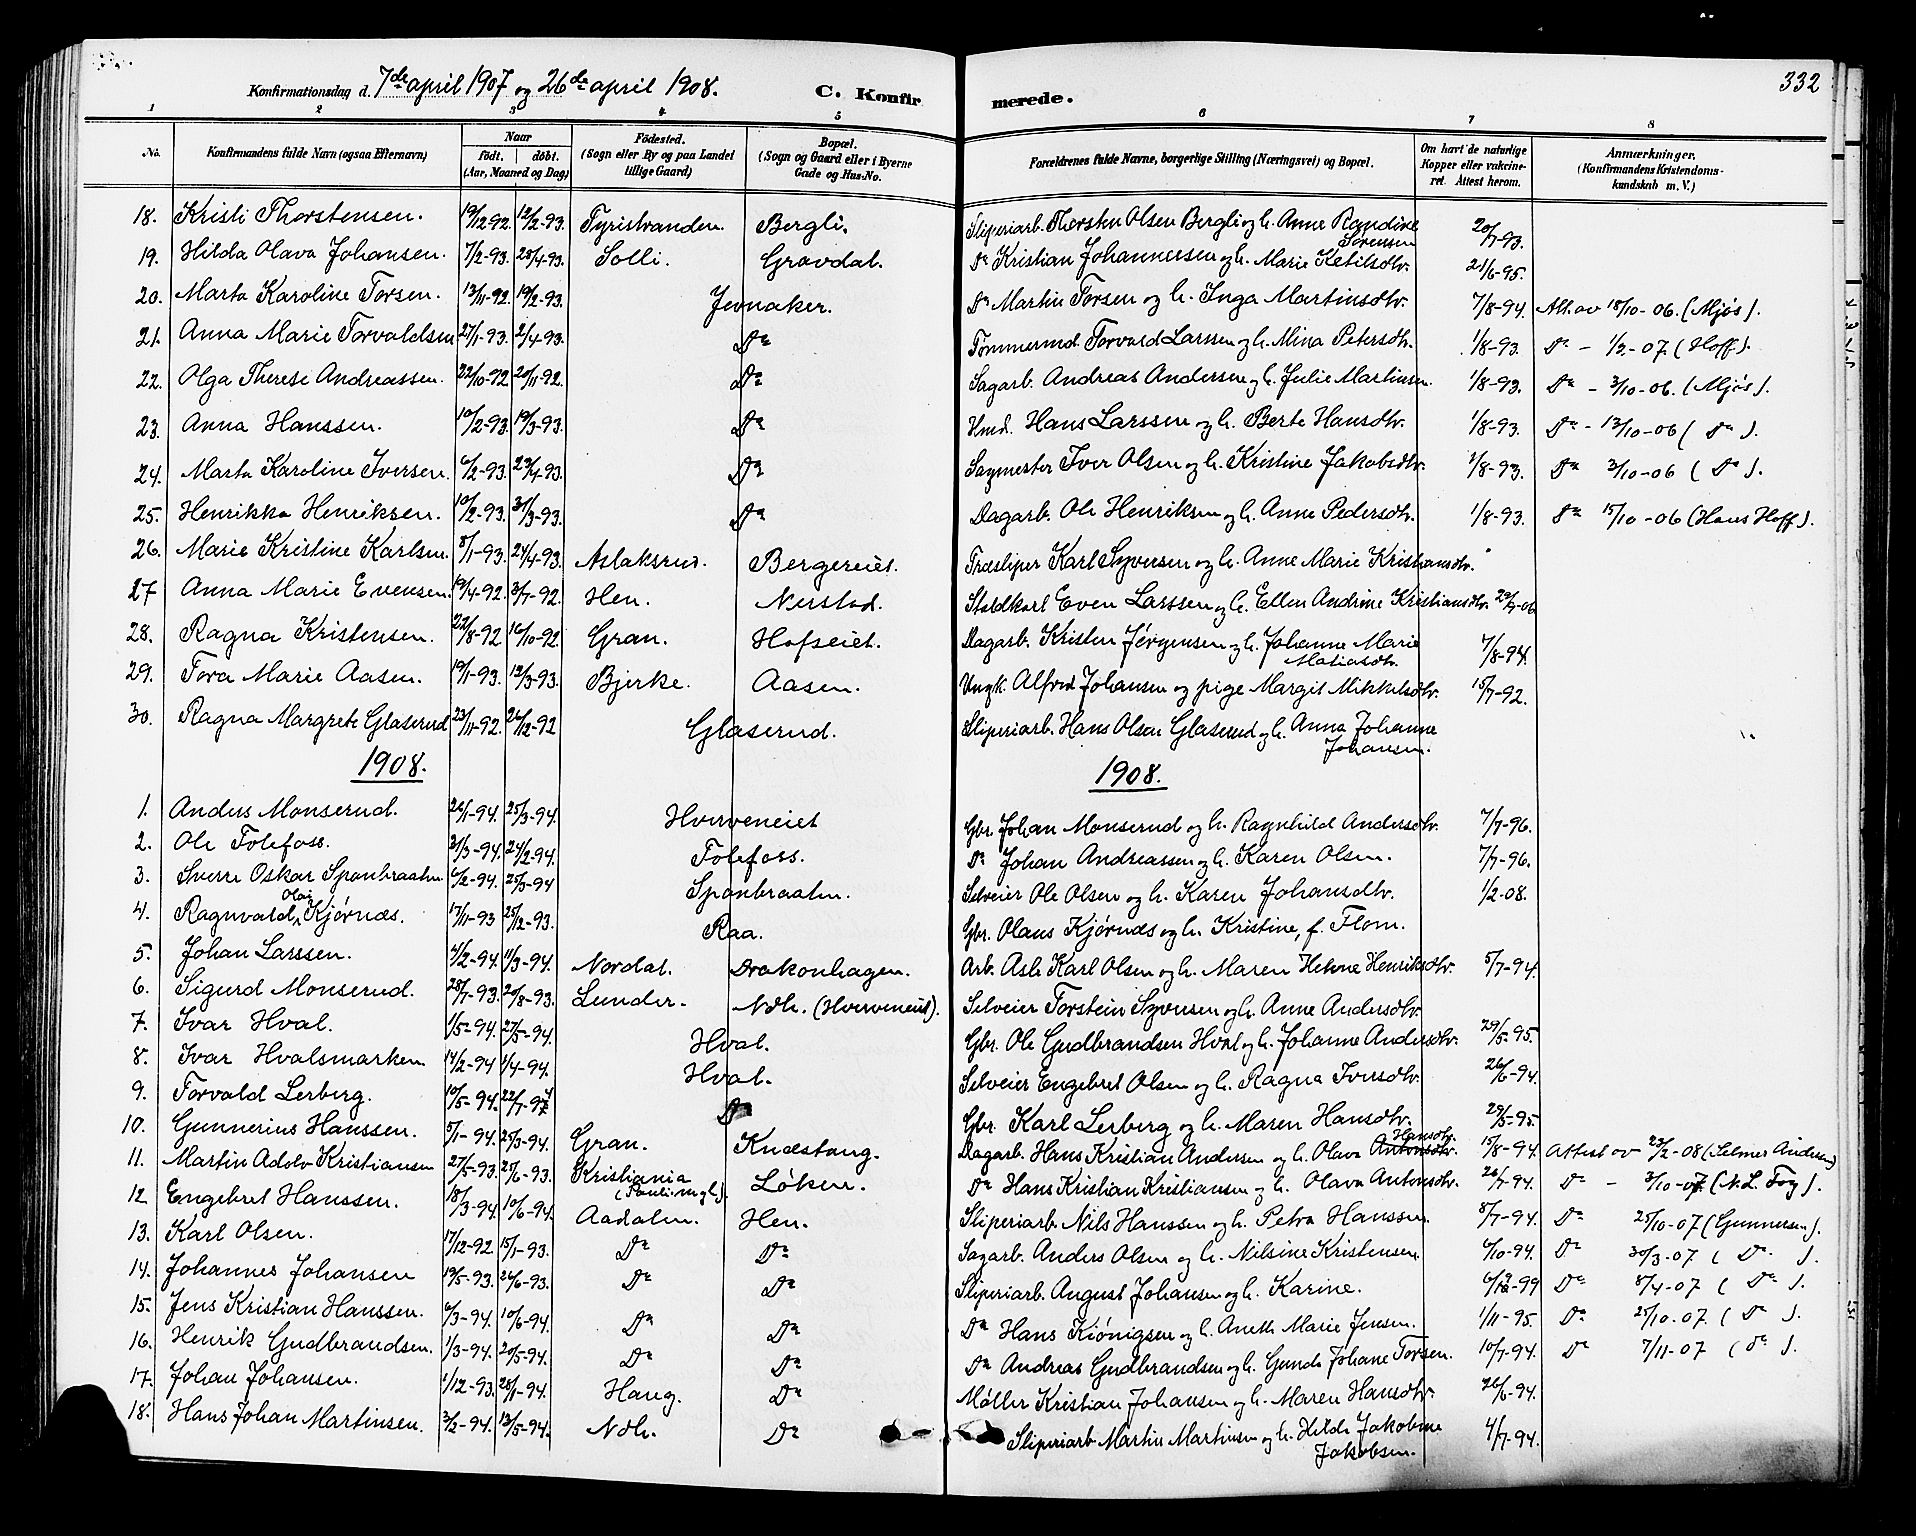 332
Konfirmationsdag d. 7de april 1907 og 26de april 1908. C. Konfirmerede.
1 2 3 4 5 6 7 8
No. Konfirmandens fulde Navn (ogsaa Efternavn) Naar födt. döbt. (Aar, Maaned og Dag) Födested. (Sogn eller By og paa Landet tillige Gaard) Bopæl. (Sogn og Gaard eller i Byerne Gade og Hus-No. Forældrenes fulde Navne, borgerlige Stilling (Næringsvei) og Bopæl. Om havt de naturlige Kopper eller vakcineret. Attest herom. Anmærkninger. (Konfirmandens Kristendomskundskab m. V.)
18. Kristi Thorstensen. 19/12-92. 12/2-93. Tyristranden. Bergli. Sliperiarb. Thorsten Olsen Bergli og h. Anne Randine Sørensen 20/7-93.
19. Hilda Olava Johansen. 7/2-93. 28/4-93. Solli. Gravdal. Do Kristian Johannessen og h. Marie Ketilsdtr. 21/6-95.
20. Marta Karoline Torsen. 13/11-92. 19/2-93. Jevnaker. Do Martin Torsen og h. Inga Martinsdtr. 7/8-94. Att. av 18/10-06. (Mjøs).
21. Anna Marie Torvaldsen 27/1-93. 2/4-93. Do Tømmermd. Torvald Larssen og h. Mina Petersdtr. 1/8-93. Do - 1/2-07. (Hoff).
22. Olga Therese Andreassen. 22/10-92 20/11-92. Do Sagarb. Andreas Andersen og h. Julie Martinsen. 1/8-93. Do - 3/10-06. (Mjøs).
23. Anna Hanssen. 10/2-93. 19/3-93. Do Hmd. Hans Larssen og h. Berte Hansdtr. 1/8-93. Do - 13/10-06 ( Do ).
24. Marta Karoline Iversen. 6/2-93. 23/4-93. Do Sagmester Iver Olsen og h. Kristine Jakobsdtr. 1/8-93. Do 3/10-06 ( Do ).
25. Henrikka Henriksen. 10/2-93. 31/3-93. Do Dagarb. Ole Henriksen og h. Anne Pedersdtr. 1/8-93. Do 15/10-06 (Hans Hoff).
26. Marie Kristine Karlsen. 8/1-93. 24/4-93. Aslaksrud. Bergereiet. Træsliper Karl Syversen og h. Anne Marie Kristiansdtr. "
27 Anna Marie Evensen. 19/4-92. 3/7-92. Hen. Nerstad. Staldkarl Even Larssen og h. Ellen Andrine Kristiansdtr. 29/9-06
28. Ragna Kristensen. 22/8-92 16/10-92. Gran. Hofseiet. Dagarb. Kristen Jørgensen og h. Johanne Marie Matiasdtr. 7/8-94.
29. Tora Marie Aasen. 19/1-93. 12/3-93. Bjerke. Aasen. Ungk. Alfred Johansen og pige Margit Mikkelsdtr. 15/7-92.
30. Ragna Margrete Glaserud 23/11-92. 26/12-92 Glaserud. Sliperiarb. Hans Olsen Glaserud og h. Anna Johanne Johansen.
1908. 1908.
1. Anders Monserud. 26/1-94. 25/3-94. Hverveneiet Gbr. Johan Monserud og h. Ragnhild Andersdtr. 7/7-96.
2. Ole Tolefoss. 21/3-94. 24/2-94. Tolefoss. Do Johan Andreassen og h. Karen Olsen. 7/7-96.
3. Sverre Oskar Sponbraaten. 6/2-94. 25/3-94 Sponbraaten. Selveier Ole Olsen og h. Karen Johansdtr. 1/2-08.
4. Ragnvald Olai Kjørnæs. 17/11-93 25/12-93. Raa. Gbr. Olaus Kjørnæs og h. Kristine, f. Flom.
5. Johan Larssen. 4/2-94. 11/3-94. Nordal. Drakonhagen. Arb. Asle Karl Olsen og h. Maren Helene Henriksdtr. 5/7-94.
6. Sigurd Monserud. 28/7-93. 20/8-93. Lunder. Ndh. (Hverveneiet). Selveier Torstein Syversen og h. Anne Andersdtr.
7. Ivar Hval. 1/5-94. 27/5-94. Hval. Gbr. Ole Gudbrandsen Hval og h. Johanne Andersdtr. 29/5-95.
8. Ivar Hvalsmarken 14/2-94 1/4-94. Hval. Selveier Engebret Olsen og h. Ragna Iversdtr. 26/6-94.
9. Torvald Lerberg. 10/5-94. 22/7-94 Do Gbr. Karl Lerberg og h. Maren Hansdtr. 29/5-95.
10. Gunnerius Hanssen. 5/1-94. 25/3-94. Gran. Knæstang. Dagarb. Hans Kristian Andersen og h. Olava Antonsdtr. Hansdtr. 15/8-94. Attest av 23/2-08 (Selmer Andersen)
11. Martin Adolv Kristiansen 27/5-93. 25/6-93. Kristiania (Paulimgh.). Løken. Do Hans Kristian Kristiansen og h. Olava Antonsdtr. 26/7-94. Do - 3/10-07. (N. L. Tog).
12 Engebret Hanssen. 18/3-94. 10/6-94. Aadalen. Hen. Sliperiarb. Nils Hanssen og h. Petra Hanssen. 8/7-94. Do 25/10-07. (Gunnersen).
13. Karl Olsen. 17/12-92 15/1-93. Do Do Sagarb. Anders Olsen og h. Nilsine Kristensen 6/10-94. Do 30/3-07 ( Do ).
14. Johannes Johansen 19/5-93. 24/6-93. Do Do Sliperiarb. August Johansen og h. Karine. 6/12-99 Do 8/4-07 ( Do ).
15. Jens Kristian Hanssen. 6/3-94. 10/6-94. Do Do Do Hans Kiönigsen og h. Aneth Marie Jensen. 1/11-95. Do 25/10-07. ( Do ).
16. Henrik Gudbrandsen. 1/3-94. 20/5-94. Do Do Do Andreas Gudbrandsen og h. Gunda Johane Torsen. 10/7-94. Do 7/11-07 ( Do ).
17. Johan Johansen. 1/12-93. 28/1-94. Haug. Do Møller Kristian Johansen og h. Maren Hansdtr. 26/6-94.
18. Hans Johan Martinsen. 3/2-94. 13/5-94. Ndh. Do Sliperiarb. Martin Martinsen og h. Hilda Jakobine Jakobsen. 4/7-94.